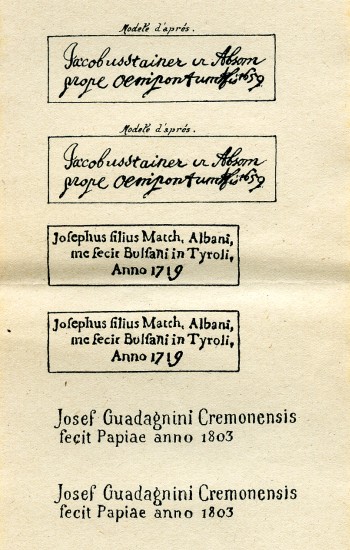 Modelé d'aprés.
Jacobus Stainer in Absom
prope Oenipontum 1659
Modelé d'aprés.
Jacobus Stainer in Absom
prope Oenipontum 1659
Josephus filius Matth. Albani,
me fecit Bulsani in Tyroli,
Anno 1719
Josephus filius Matth. Albani,
me fecit Bulsani in Tyroli,
Anno 1719
Josef Guadagnini Cremonensis
fecit Papiae anno 1803
Josef Guadagnini Cremonensis
fecit Papiae anno 1803